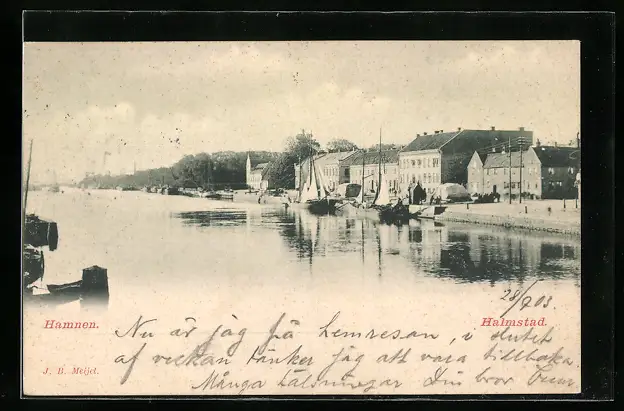 28/9 03
Hamnen.
Halmstad.
Nu är jag på hemresan, i slutet
af veckan tänker jag att vara tillbaka
J. B. Meijel.
Många hälsningar Din bror